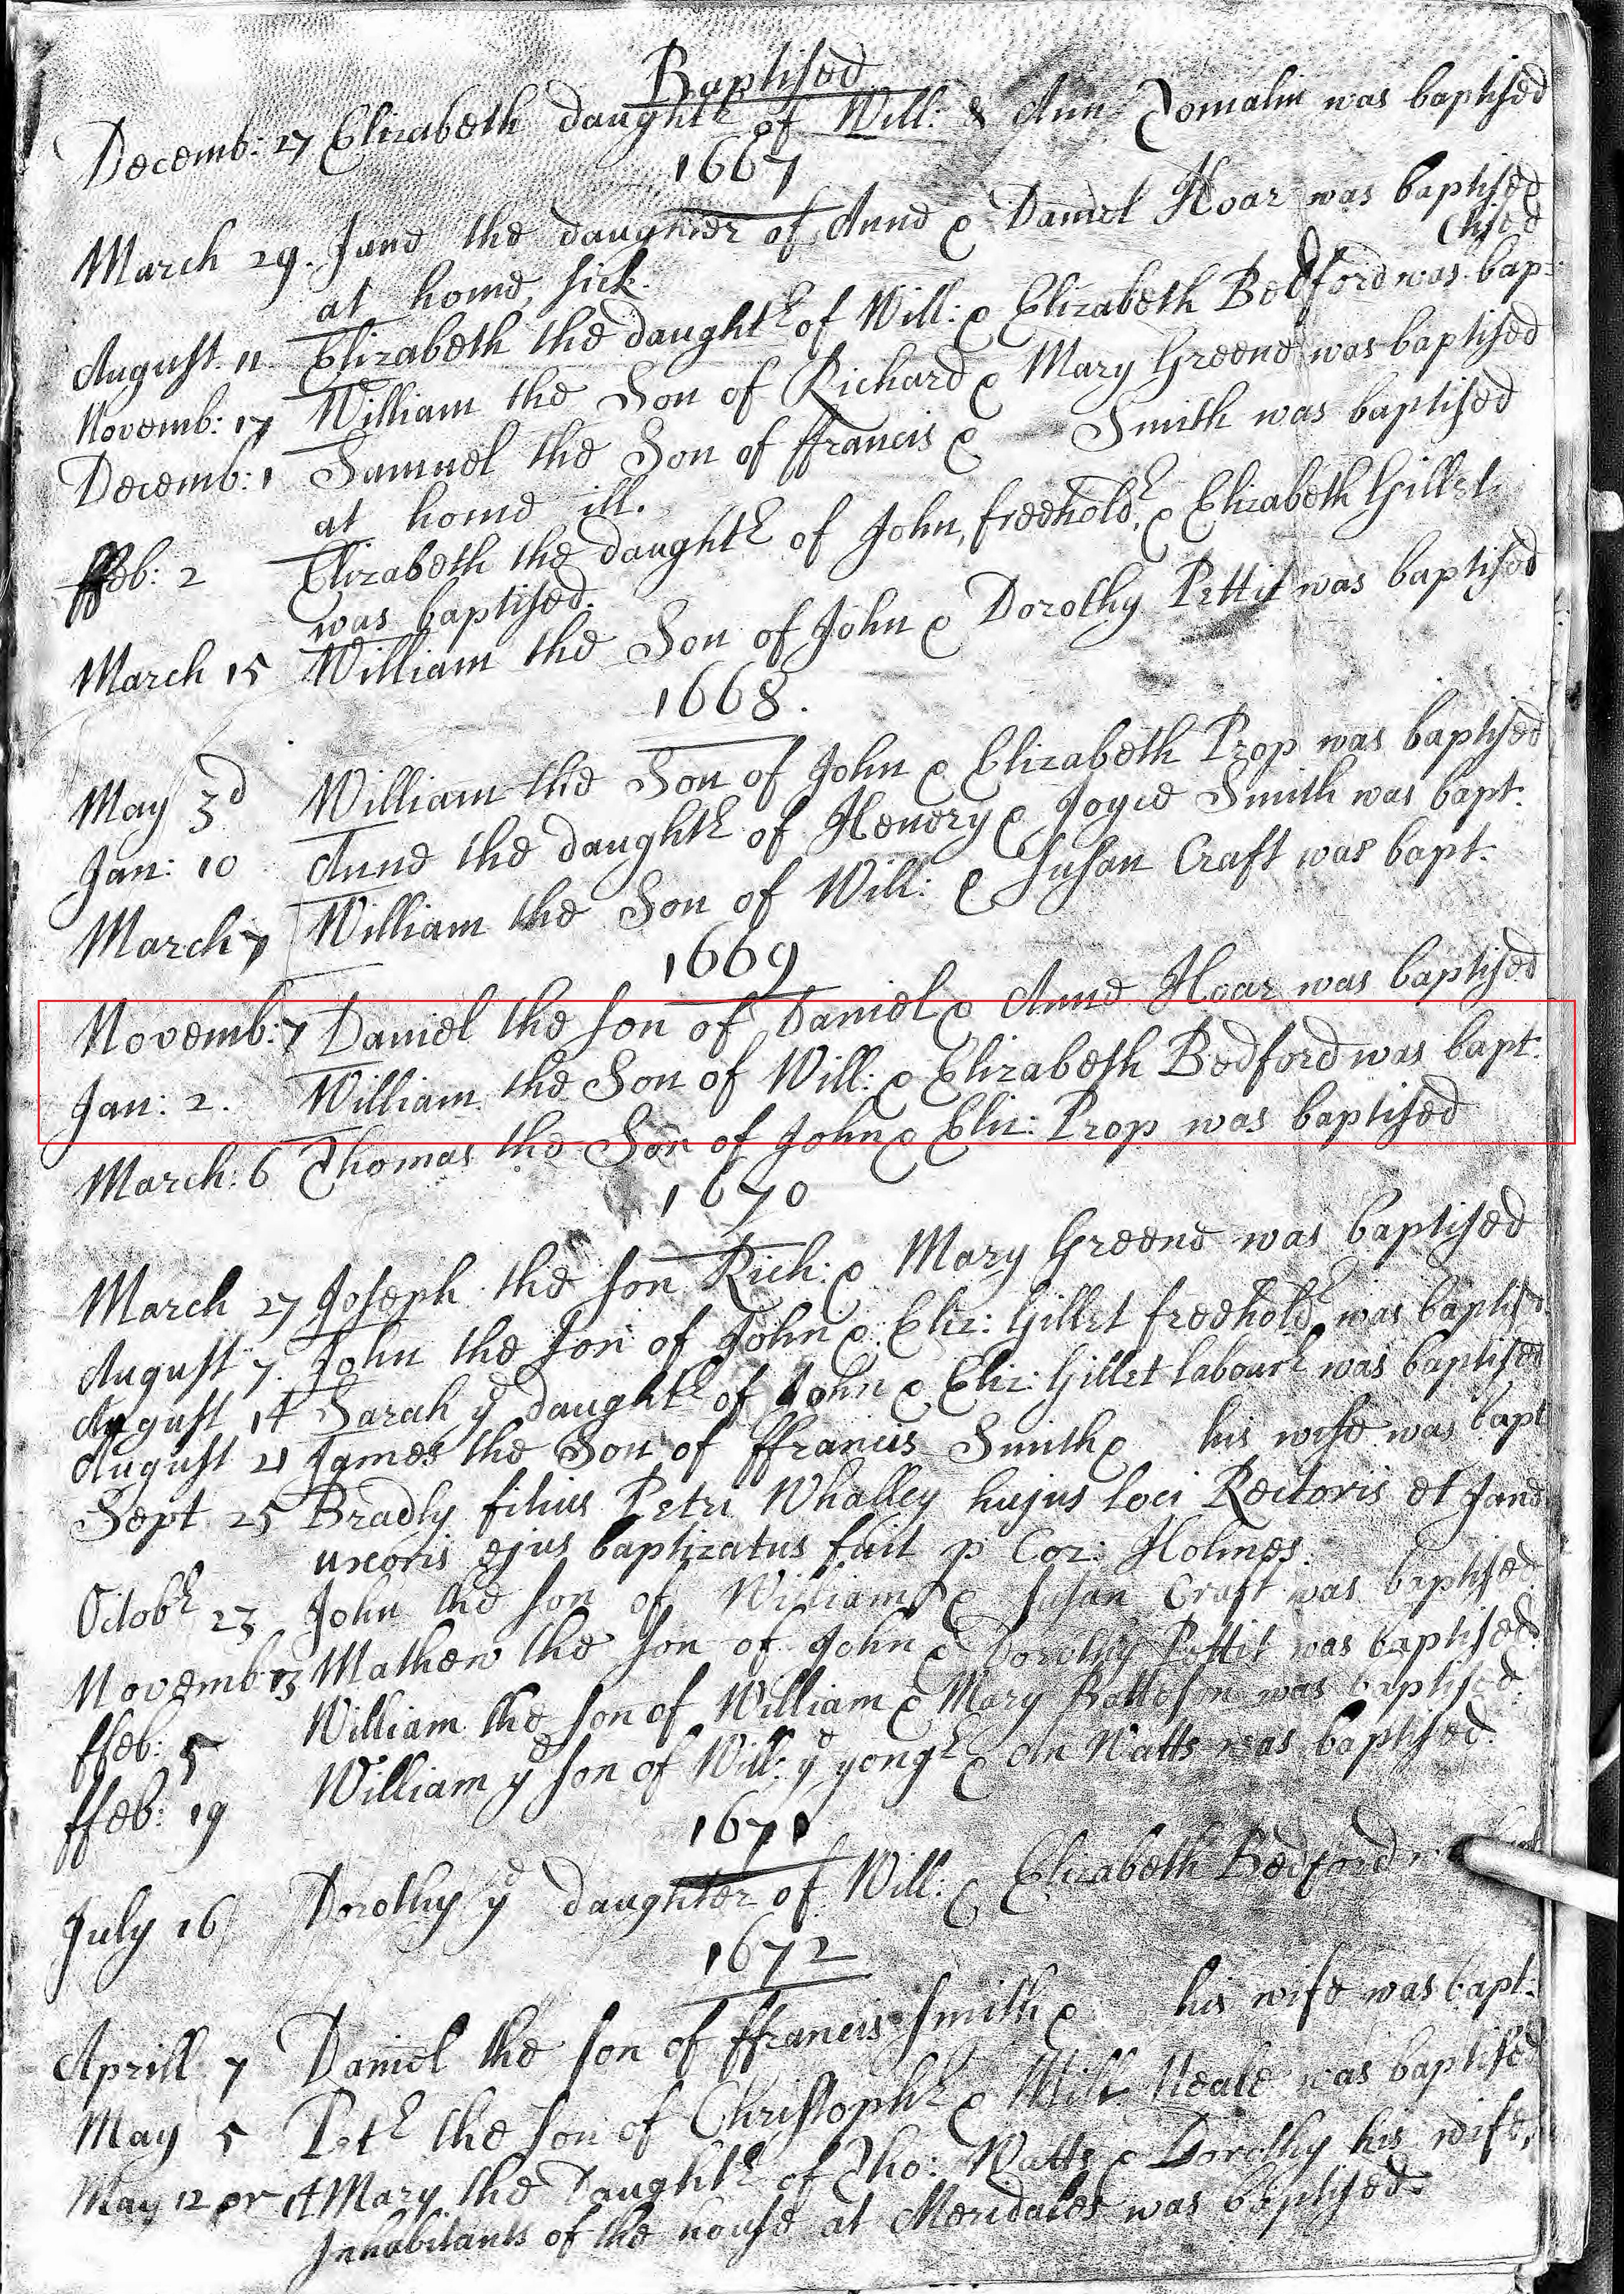 Baptised
Decemb: 27 Elizabeth daughtr of Will: & Ann Tomalin was baptised
1667
March 29. Jane the daughter of Anne & Daniel Hoar was baptised
at home, sick.
(tised
August. 11 Elizabeth the daughtr of Will: & Elizabeth Bedford was bap:
Novemb: 17 William the Son of Richard & Mary Greene was baptised
Decemb: 1 Samuel the Son of ffrancis & Smith was baptised
at home ill.
ffeb: 2 Elizabeth the daughtr of John, freeholdr, & Elizabeth Gillet
was baptised.
March 15 William the Son of John & Dorothy Pettit was baptised
1668.
May 3d William the Son of John & Elizabeth Prop was baptised
Jan: 10 Anne the daughtr of Henery & Joyce Smith was bapt:
March 7 William the Son of Will: & Susan Craft was bapt:
1669
Novemb: 7 Daniel the son of Daniel & Anne Hoar was baptised
Jan: 2. William the Son of Will: & Elizabeth Bedford was bapt:
March: 6 Thomas the Son of John & Eliz: Prop was baptised
1670
March 27 Joseph the son Rich: & Mary Greene was baptised
August 7. John the son of John & Eliz: Gillet freeholdr was baptisd
August 14 Sarah ye daughtr of John & Eliz: Gillet labourr was baptised
August 21 James the Son of ffrancis Smith & his wife was bapt
Sept 25 Bradly filius Petri Whalley hujus loci Rectoris et Jane
uxoris ejus baptizatus fuit p Cor: Holmes.
Octobr 23 John the son of William & Susan Craft was baptised
Novemb 13 Mathew the son of John & Dorothy Pettit was baptised.
ffeb: 5 William the son of William & Mary Batteson was baptised.
ffeb: 19 William ye son of Will: ye yongr & An Watts was baptised.
1671
July 16 Dorothy ye daughter of Will: & Elizabeth Bedford
1672
Aprill 7 Daniel the son of ffrancis Smith & his wife was bapt:
May 5 Petr the son of Christophr & Mill: Neale was baptised
May 12 or 14 Mary the Daughtr of Tho: Watts & Dorothy his wife,
Inhabitants of the house at Meridales was baptised.